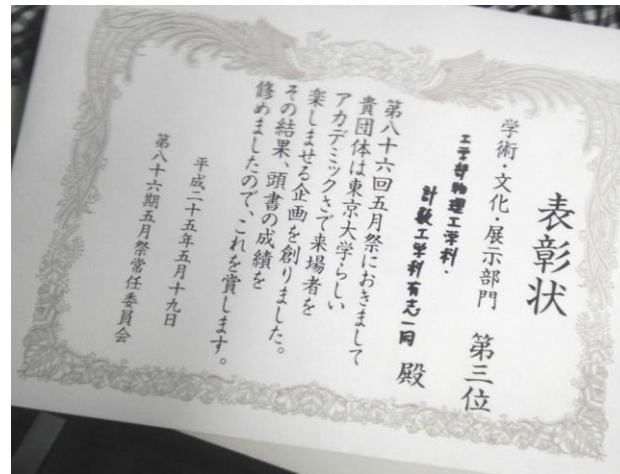 表彰状
学術・文化・展示部門 第三位
工学部物理工学科・
計数工学科有志一同 殿
第八十六回五月祭におきまして
貴団体は東京大学らしい
アカデミックさで来場者を
楽しませる企画を創りました。
その結果、頭書の成績を
修めましたので、これを賞します。
平成二十五年五月十九日
第八十六期五月祭常任委員会